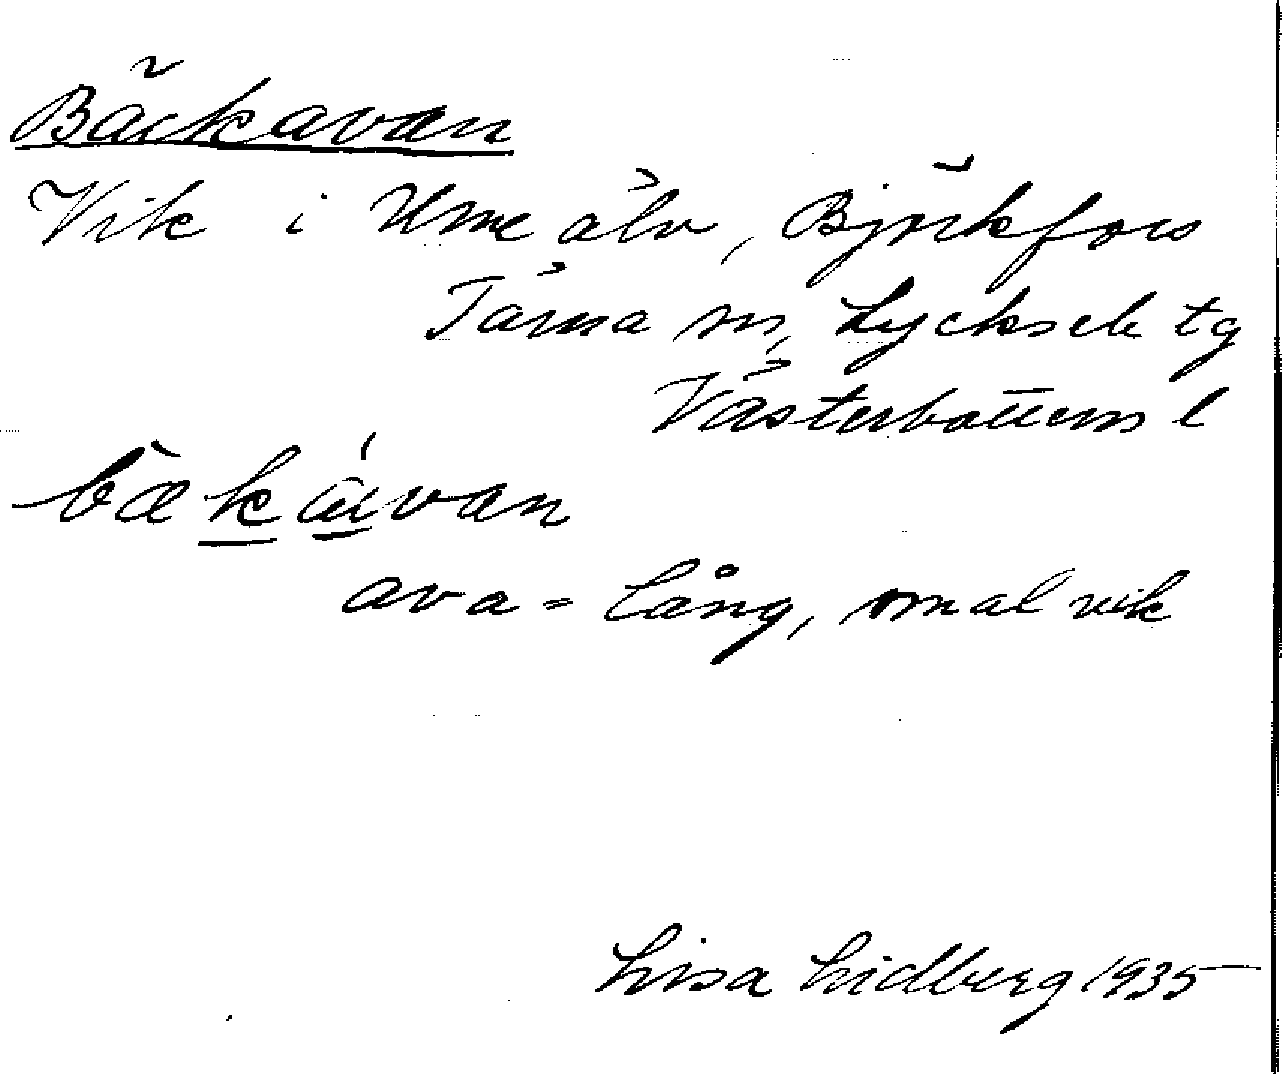 Bäckavan
Vik i Ume älv, Björkfors
Tärna sn, Lycksele tg
Västerbottens l
bækávan
ava = lång, smal vik
Lisa Lidberg 1935